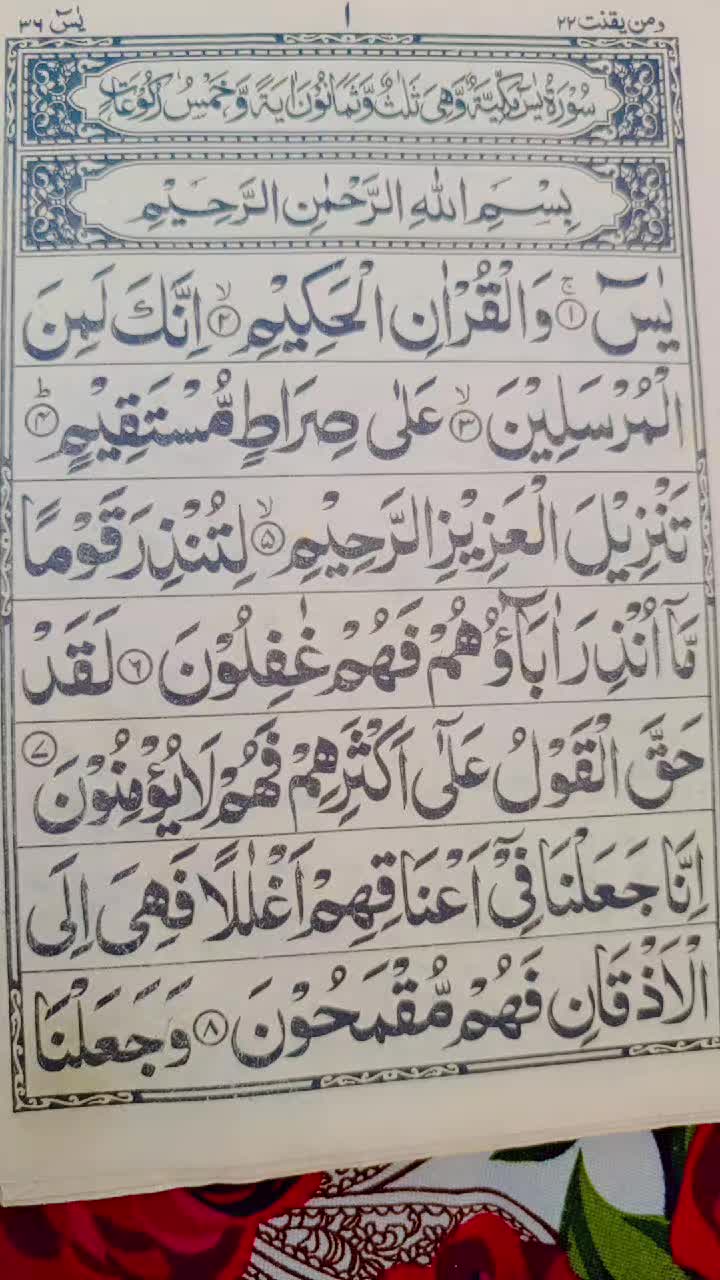 ومن يقنت ٢٢
١
يٰسٓ ٣٦
سُوْرَةُ يٰسٓ مَكِّيَّةٌ وَّهِیَ ثَلٰثٌ وَّثَمَانُوْنَ اٰيَةً وَّخَمْسُ رُكُوْعَاتٍ
بِسْمِ اللّٰهِ الرَّحْمٰنِ الرَّحِيْمِ
يٰسٓ ۚ﴿۱﴾ وَالْقُرْاٰنِ الْحَكِيْمِ ۙ﴿۲﴾ اِنَّكَ لَمِنَ
الْمُرْسَلِيْنَ ۙ﴿۳﴾ عَلٰى صِرَاطٍ مُّسْتَقِيْمٍ ؕ﴿۴﴾
تَنْزِيْلَ الْعَزِيْزِ الرَّحِيْمِ ۙ﴿۵﴾ لِتُنْذِرَ قَوْمًا
مَّاۤ اُنْذِرَ اٰبَآؤُهُمْ فَهُمْ غٰفِلُوْنَ ﴿۶﴾ لَقَدْ
حَقَّ الْقَوْلُ عَلٰۤى اَكْثَرِهِمْ فَهُمْ لَا يُؤْمِنُوْنَ ﴿۷﴾
اِنَّا جَعَلْنَا فِیْۤ اَعْنَاقِهِمْ اَغْلٰلًا فَهِیَ اِلَی
الْاَذْقَانِ فَهُمْ مُّقْمَحُوْنَ ﴿۸﴾ وَجَعَلْنَا